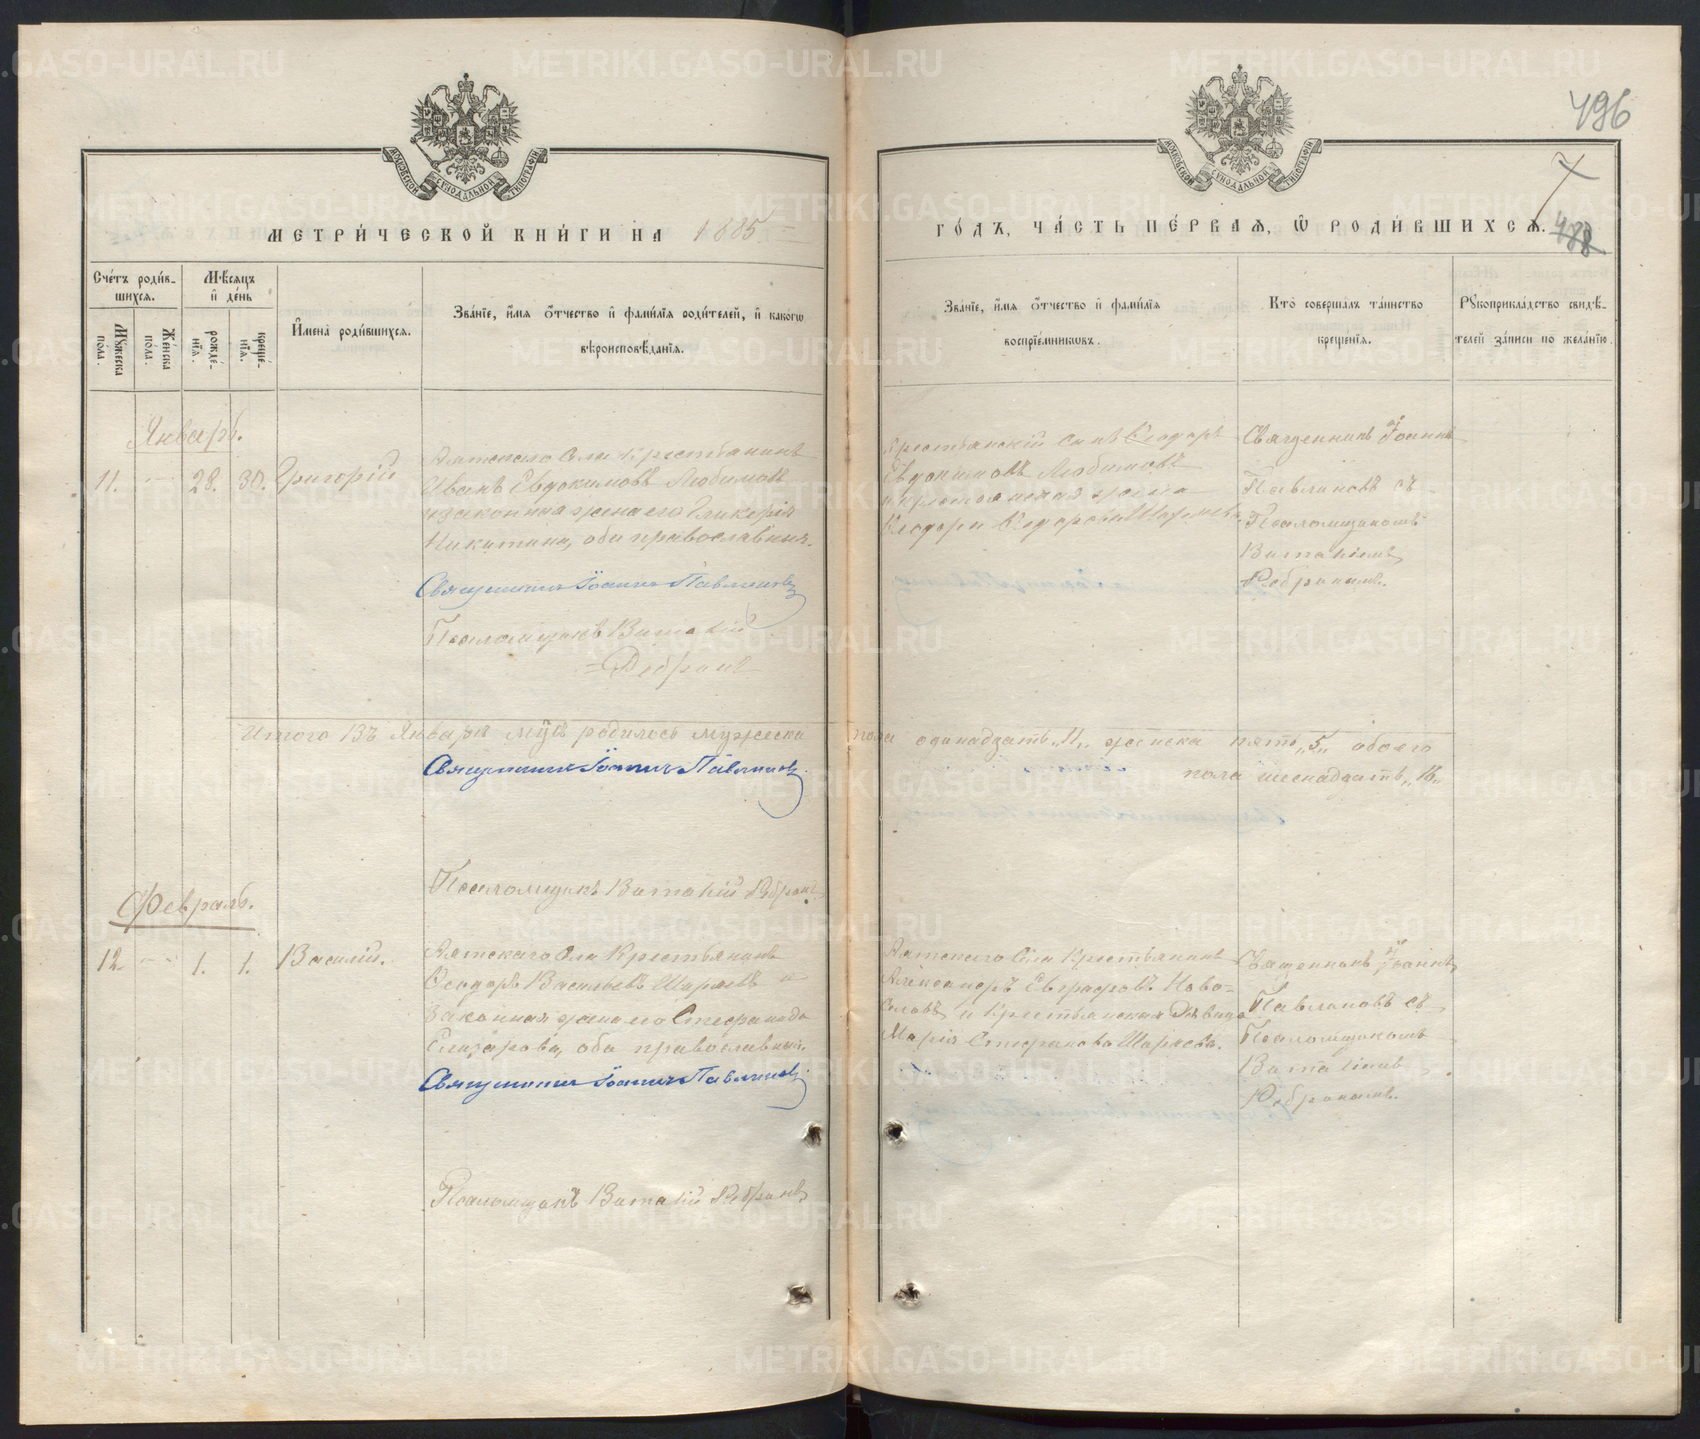 496
7
488
МОСКОВСКОЙ СѴНОДАЛЬНОЙ ТИПОГРАФІИ
МОСКОВСКОЙ СѴНОДАЛЬНОЙ ТИПОГРАФІИ
МЕТРИ́ЧЕСКОЙ КНИ́ГИ НА 1885
ГО́ДЪ, ЧА́СТЬ ПЕ́РВАЯ, Ѡ РОДИ́ВШИХСѦ.
Сче́тъ роди́в-
шихся.
Мѣ́сяцъ
и де́нь
Мꙋ́жеска
по́ла.
Же́нска
по́ла.
рожде́-
нїя.
креще́-
нїя.
И҆мена̀ роди́вшихся.
Зва́нїе, и҆́мя ѻ҆́тчество и҆ фами́лїя роди́телей, и҆ како́гѡ
вѣроисповѣ́данїя.
Зва́нїе, и҆́мя ѻ҆́тчество и҆ фами́лїя
воспрїе́мникѡвъ.
Кто̀ соверша́лъ та́инство
креще́нїя.
Рꙋкоприкла́дство свидѣ́-
телей за́писи по жела́нїю.
Январь.
11.
28.
30.
Григорій
Аятскаго Села Крестьянинъ
Иванъ Евдокимовъ Любимовъ
и законная жена его Гликерія
Никитина, оба православные.
Священникъ Іоаннъ Павлиновъ
Псаломщикъ Виталій
Ребринъ
Крестьянскій сынъ Ѳеодоръ
Евдокимовъ Любимовъ
и крестьянская жена
Священникъ Іоаннъ
Павлиновъ съ
Псаломщикомъ
Виталіемъ
Ребринымъ.
Итого въ Январѣ м҃цѣ родилось мужеска
пола одинадцать „11„ женска пять „5„ обоего
пола шеснадцать „16„
Священникъ Іоаннъ Павлиновъ
Псаломщикъ Виталій Ребринъ
Февраль.
12
1.
1.
Василій.
Аятскаго Села Крестьянинъ
Ѳеодоръ Васильевъ Шаряевъ и
Законная жена его Стефанида
Елизарова, оба православные.
Священникъ Іоаннъ Павлиновъ
Псаломщикъ Виталій Ребринъ
Аятскаго Села Крестьянинъ
Александръ Евграфовъ Ново-
селовъ и Крестьянская Дѣвица
Марія Стефанова Шаряева.
Священникъ Іоаннъ
Павлиновъ съ
Псаломщикомъ
Виталіемъ
Ребринымъ.
METRIKI.GASO-URAL.RU